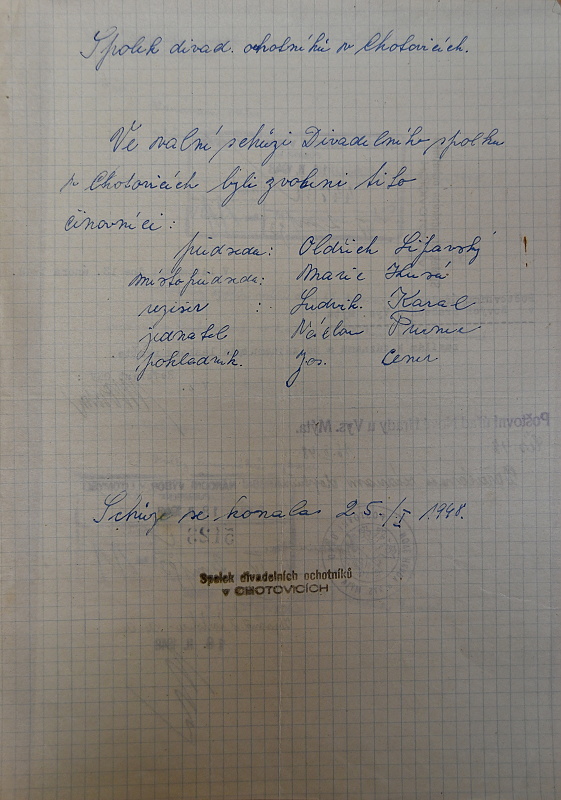 Spolek divad. ochotníků v Chotovicích.
Ve valní schůzi Divadelního spolku
v Chotovicích byli zvoleni tito
činovníci:
předseda: Oldřich Lifavský
místopředseda: Marie Husá
režiser : Ludvík. Karal
jednatel Václav
pokladník. Jos. Cener
Schůze se konala 25./I 1948.
Spolek divadelních ochotníků
v CHOTOVICÍCH
Poštovní Hrady u Vys. Mýta.